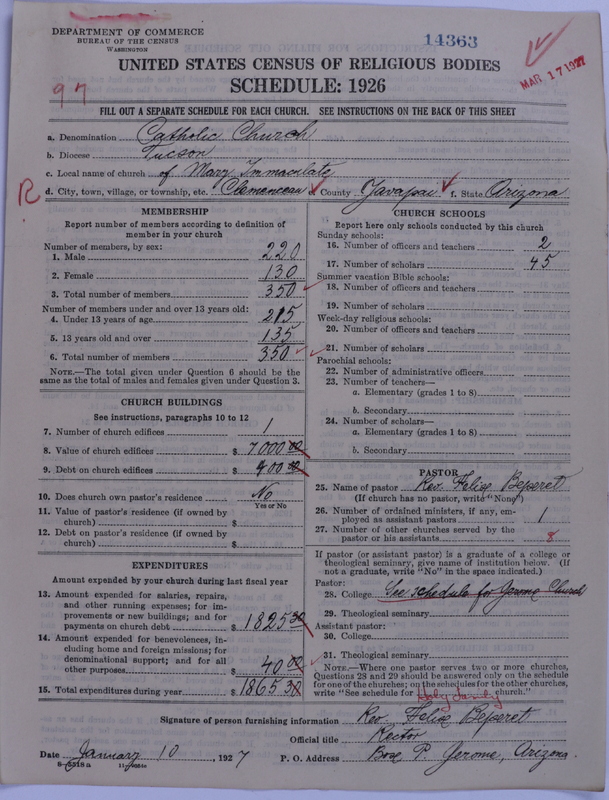 DEPARTMENT OF COMMERCE
BUREAU OF THE CENSUS
WASHINGTON
14363
MAR 17 1927
UNITED STATES CENSUS OF RELIGIOUS BODIES
SCHEDULE: 1926
97
FILL OUT A SEPARATE SCHEDULE FOR EACH CHURCH. SEE INSTRUCTIONS ON THE BACK OF THIS SHEET
a. Denomination Catholic Church
b. Diocese Tucson
c. Local name of church of Mary Immaculate
R d. City, town, village, or township, etc. Clemenceau e. County Yavapai f. State Arizona
MEMBERSHIP
Report number of members according to definition of
member in your church
Number of members, by sex:
1. Male 220
2. Female 130
3. Total number of members 350
Number of members under and over 13 years old:
4. Under 13 years of age 215
5. 13 years old and over 135
6. Total number of members 350
NOTE.—The total given under Question 6 should be the
same as the total of males and females given under Question 3.
CHURCH BUILDINGS
See instructions, paragraphs 10 to 12
7. Number of church edifices 1
8. Value of church edifices $ 7000 00
9. Debt on church edifices $ 400 00
10. Does church own pastor's residence No
Yes or No
11. Value of pastor's residence (if owned by
church) $
12. Debt on pastor's residence (if owned by
church) $
EXPENDITURES
Amount expended by church during last fiscal year
13. Amount expended for salaries, repairs,
and other running expenses; for im-
provements or new buildings; and for
payments on church debt $ 1825 30
14. Amount expended for benevolences, in-
cluding home and foreign missions; for
denominational support; and for all
other purposes $ 40 00
15. Total expenditures during year $ 1865 30
CHURCH SCHOOLS
Report here only schools conducted by this church
Sunday schools:
16. Number of officers and teachers 2
17. Number of scholars 45
Summer vacation Bible schools:
18. Number of officers and teachers
19. Number of scholars
Week-day religious schools:
20. Number of officers and teachers
21. Number of scholars
Parochial schools:
22. Number of administrative officers
23. Number of teachers—
a. Elementary (grades 1 to 8)
b. Secondary
24. Number of scholars—
a. Elementary (grades 1 to 8)
b. Secondary
PASTOR
25. Name of pastor Rev. Felix Beperet
(If church has no pastor, write "None")
26. Number of ordained ministers, if any, em-
ployed as assistant pastors 1
27. Number of other churches served by the
pastor or his assistants 8
If pastor (or assistant pastor) is a graduate of a college or
theological seminary, give name of institution below. (If
not a graduate, write "No" in the space indicated.)
Pastor:
28. College See schedule for Jerome Church
29. Theological seminary
Assistant pastor:
30. College
31. Theological seminary
NOTE.—Where one pastor serves two or more churches,
Questions 28 and 29 should be answered only on the schedule
for one of the churches; on the schedules for the other churches,
write "See schedule for Holy Family church."
Signature of person furnishing information Rev. Felix Beperet
Official title Rector
Date January 10, 1927 P. O. Address Box P. Jerome, Arizona
8—5318a